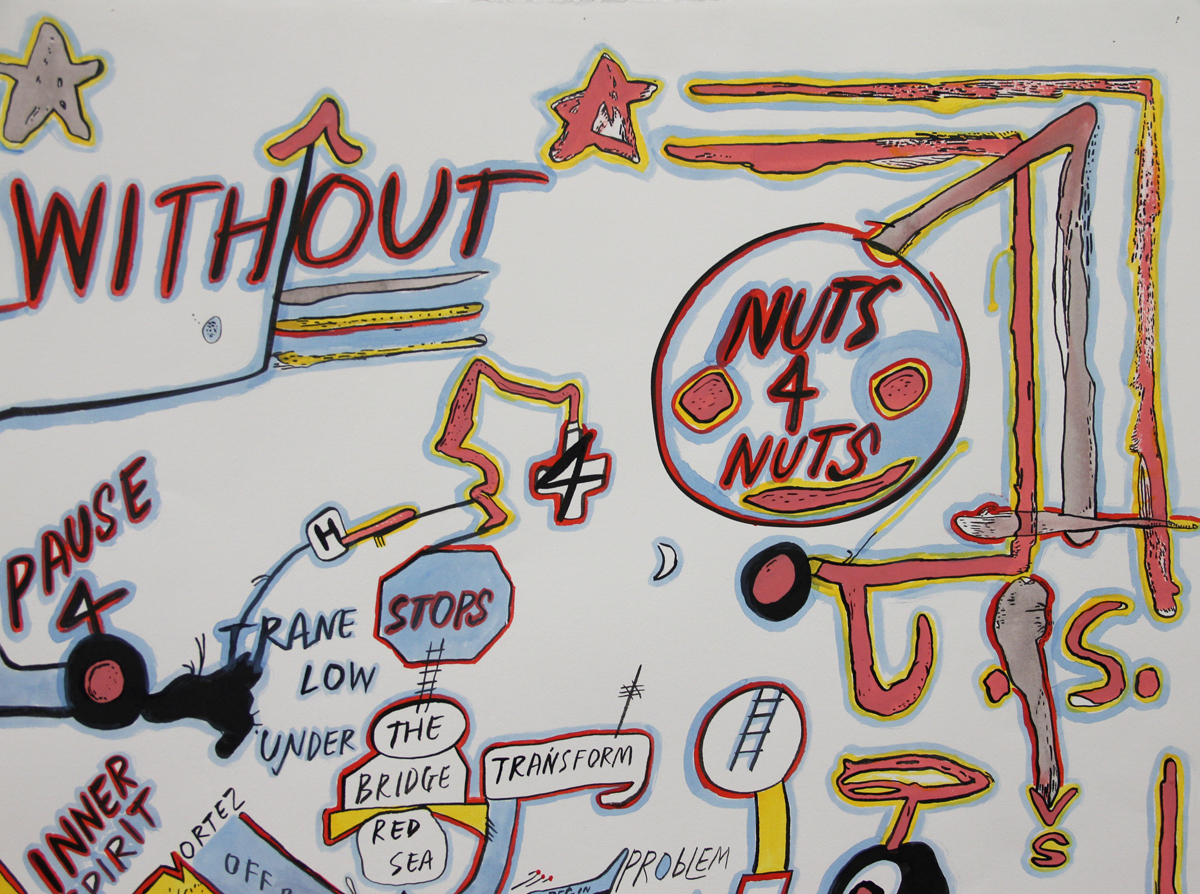 WITHOUT
NUTS
4
NUTS
4
PAUSE
4
H
STOPS
TRANE
LOW
UNDER
THE
BRIDGE
RED
SEA
TRANSFORM
U.S.
VS
INNER
SPIRIT
MORTEZ
OFF
PROBLEM